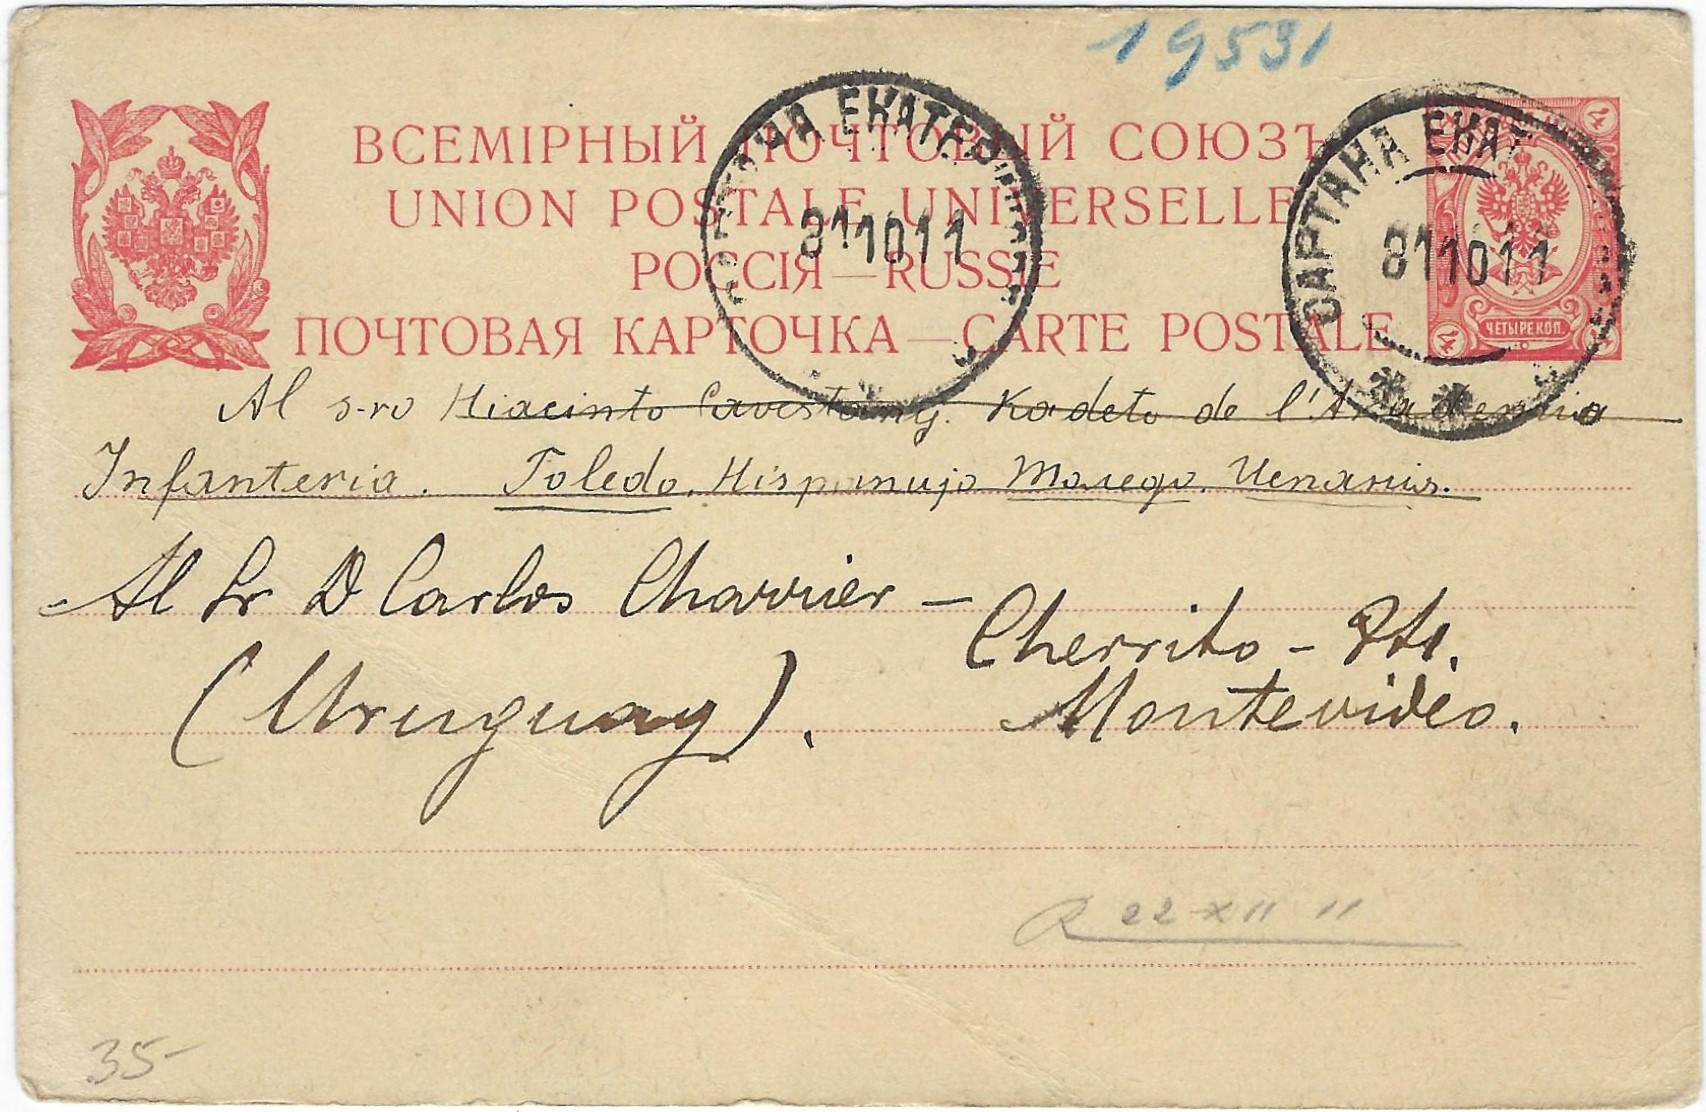 19531
ВСЕМІРНЫЙ ПОЧТОВЫЙ СОЮЗЪ
UNION POSTALE UNIVERSELLE
РОССІЯ — RUSSIE
ПОЧТОВАЯ КАРТОЧКА — CARTE POSTALE
САРТАНА ЕКАТЕРИН
311011
САРТАНА ЕКАТ
311011
4
4
ЧЕТЫРЕ КОП.
Al s-ro Hiacinto Cavestany. Kadeto de l'Akademio
Infanteria. Toledo. Hispanujo Толедо. Испанія.
Al Sr D Carlos Charrier –
Cherrito –
(Uruguay). Montevideo.
R 22 XII 11
35-